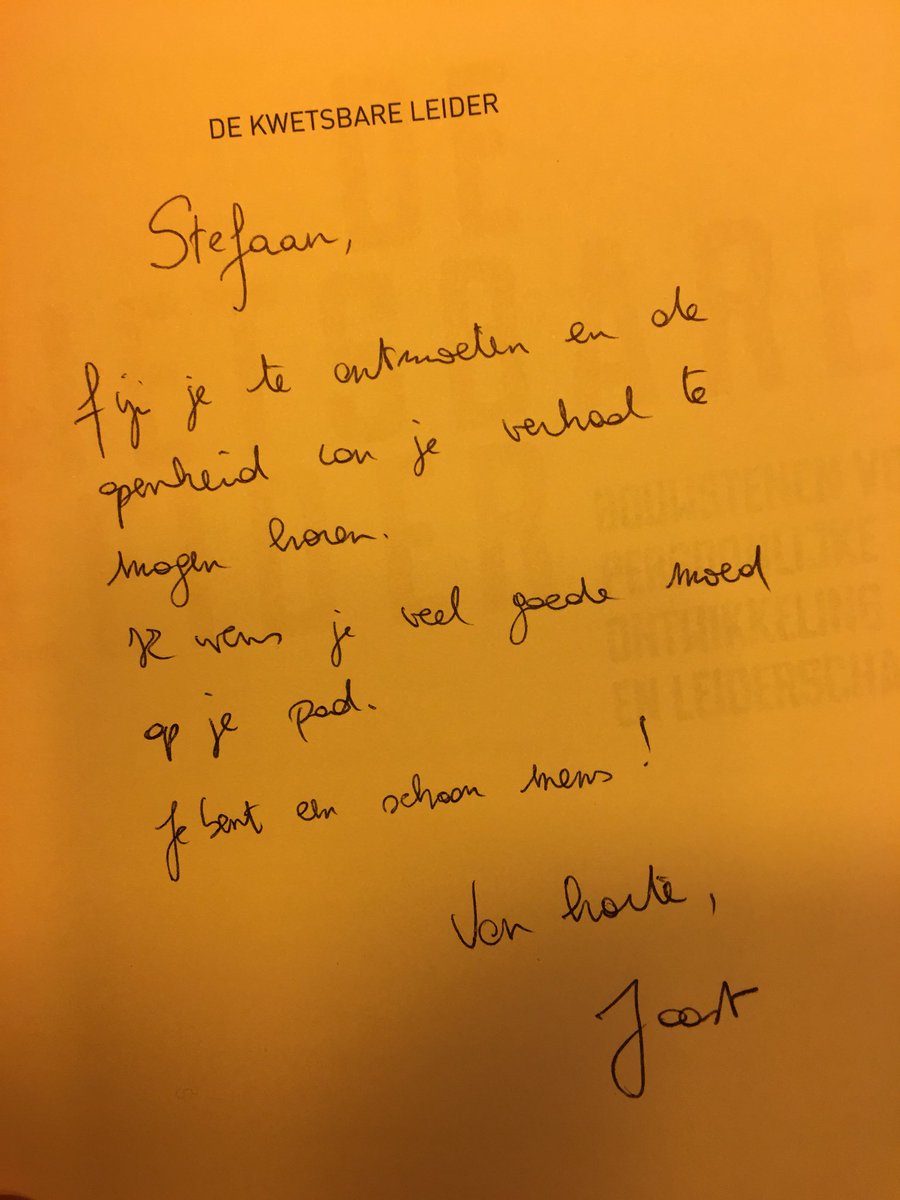 DE KWETSBARE LEIDER
Stefaan,
fijn je te ontmoeten en de
openheid van je verhaal te
mogen horen.
Ik wens je veel goede moed
op je pad.
Je bent een schoon mens!
Van harte,
Joost
BOUWSTENEN VO
PERSOONLIJKE
ONTWIKKELING
EN LEIDERSCHA